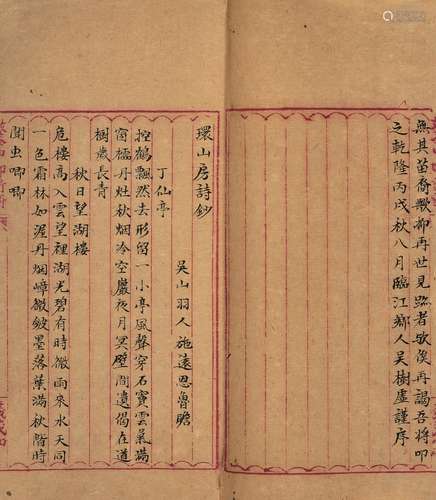 無其苗裔歟抑再世見跡者歟俟再謁吾將叩
之乾隆丙戌秋八月臨江鄉人吳樹虛謹序
環山房詩鈔
吳山羽人施遠恩魯瞻
丁仙亭
控鶴飄然去形留一小亭風聲穿石竇雲氣滿
窗櫺丹灶秋烟冷空巖夜月冥壁間遺偈在道
樹歲長青
秋日望湖樓
危樓高入雲望裡湖光碧有時微雨來水天同
一色霜林如渥丹烟嶂微斂墨落葉滿秋階時
聞虫唧唧